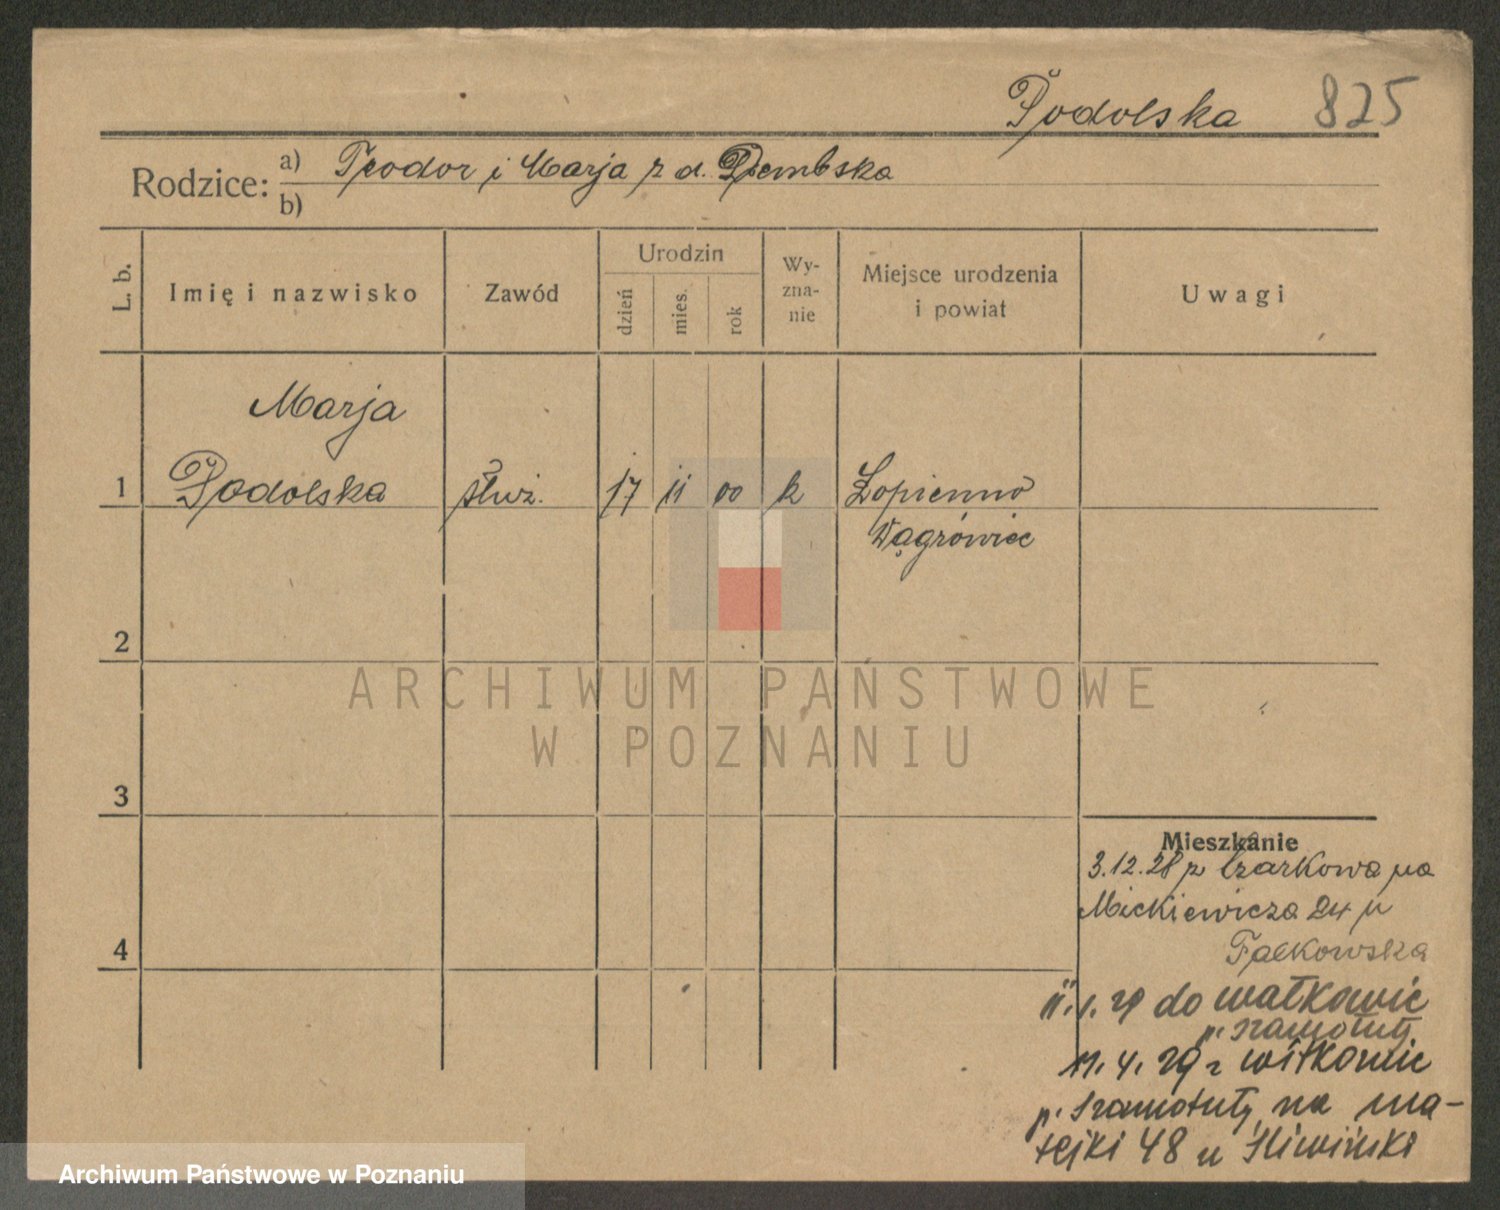 Podolska 825
Rodzice: a) Teodor i Marja z d. Dembska
b)
L. b.
Imię i nazwisko
Zawód
Urodzin
dzień
mies.
rok
Wy-
zna-
nie
Miejsce urodzenia
i powiat
Uwagi
Marja
1 Podolska służ. 17 11 00 k Łopienno
Wągrówiec
2
ARCHIWUM PAŃSTWOWE
W POZNANIU
3
Mieszkanie
3.12.28 z Czarkowa na
Mickiewicza 24 u
4
Falkowska
11.1.29 do Watkowic
p. Szamotuły
11.4.29 z Witkowic
p. Szamotuły na Ma-
tejki 48 u Śliwiński
Archiwum Państwowe w Poznaniu